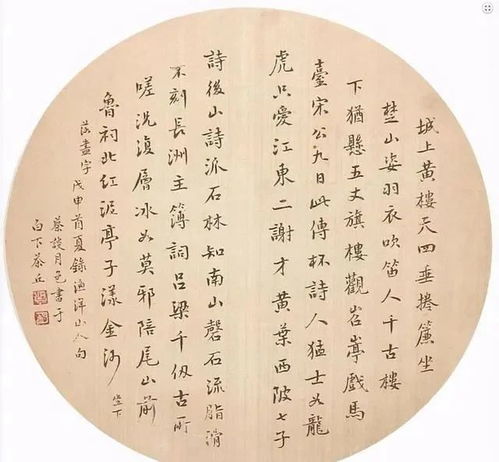 城上黄樓天四垂捲簾坐
楚山姿羽衣吹笛人千古樓
下猶懸五丈旗樓觀岧嶤戲馬
臺宋公九日此傳杯詩人猛士如龍
虎只愛江東二謝才黄葉西陂七子
詩後山詩派石林知南山磬石流脂滑
不刻長洲主簿詞吕梁千仞古所
嗟洗復層冰如莫邪陪尾山前
魯祠北紅泥亭子漾金沙 坐下
落畫字 戊申首夏錄漁洋山人句
蔡談月色書于
白下茶丘